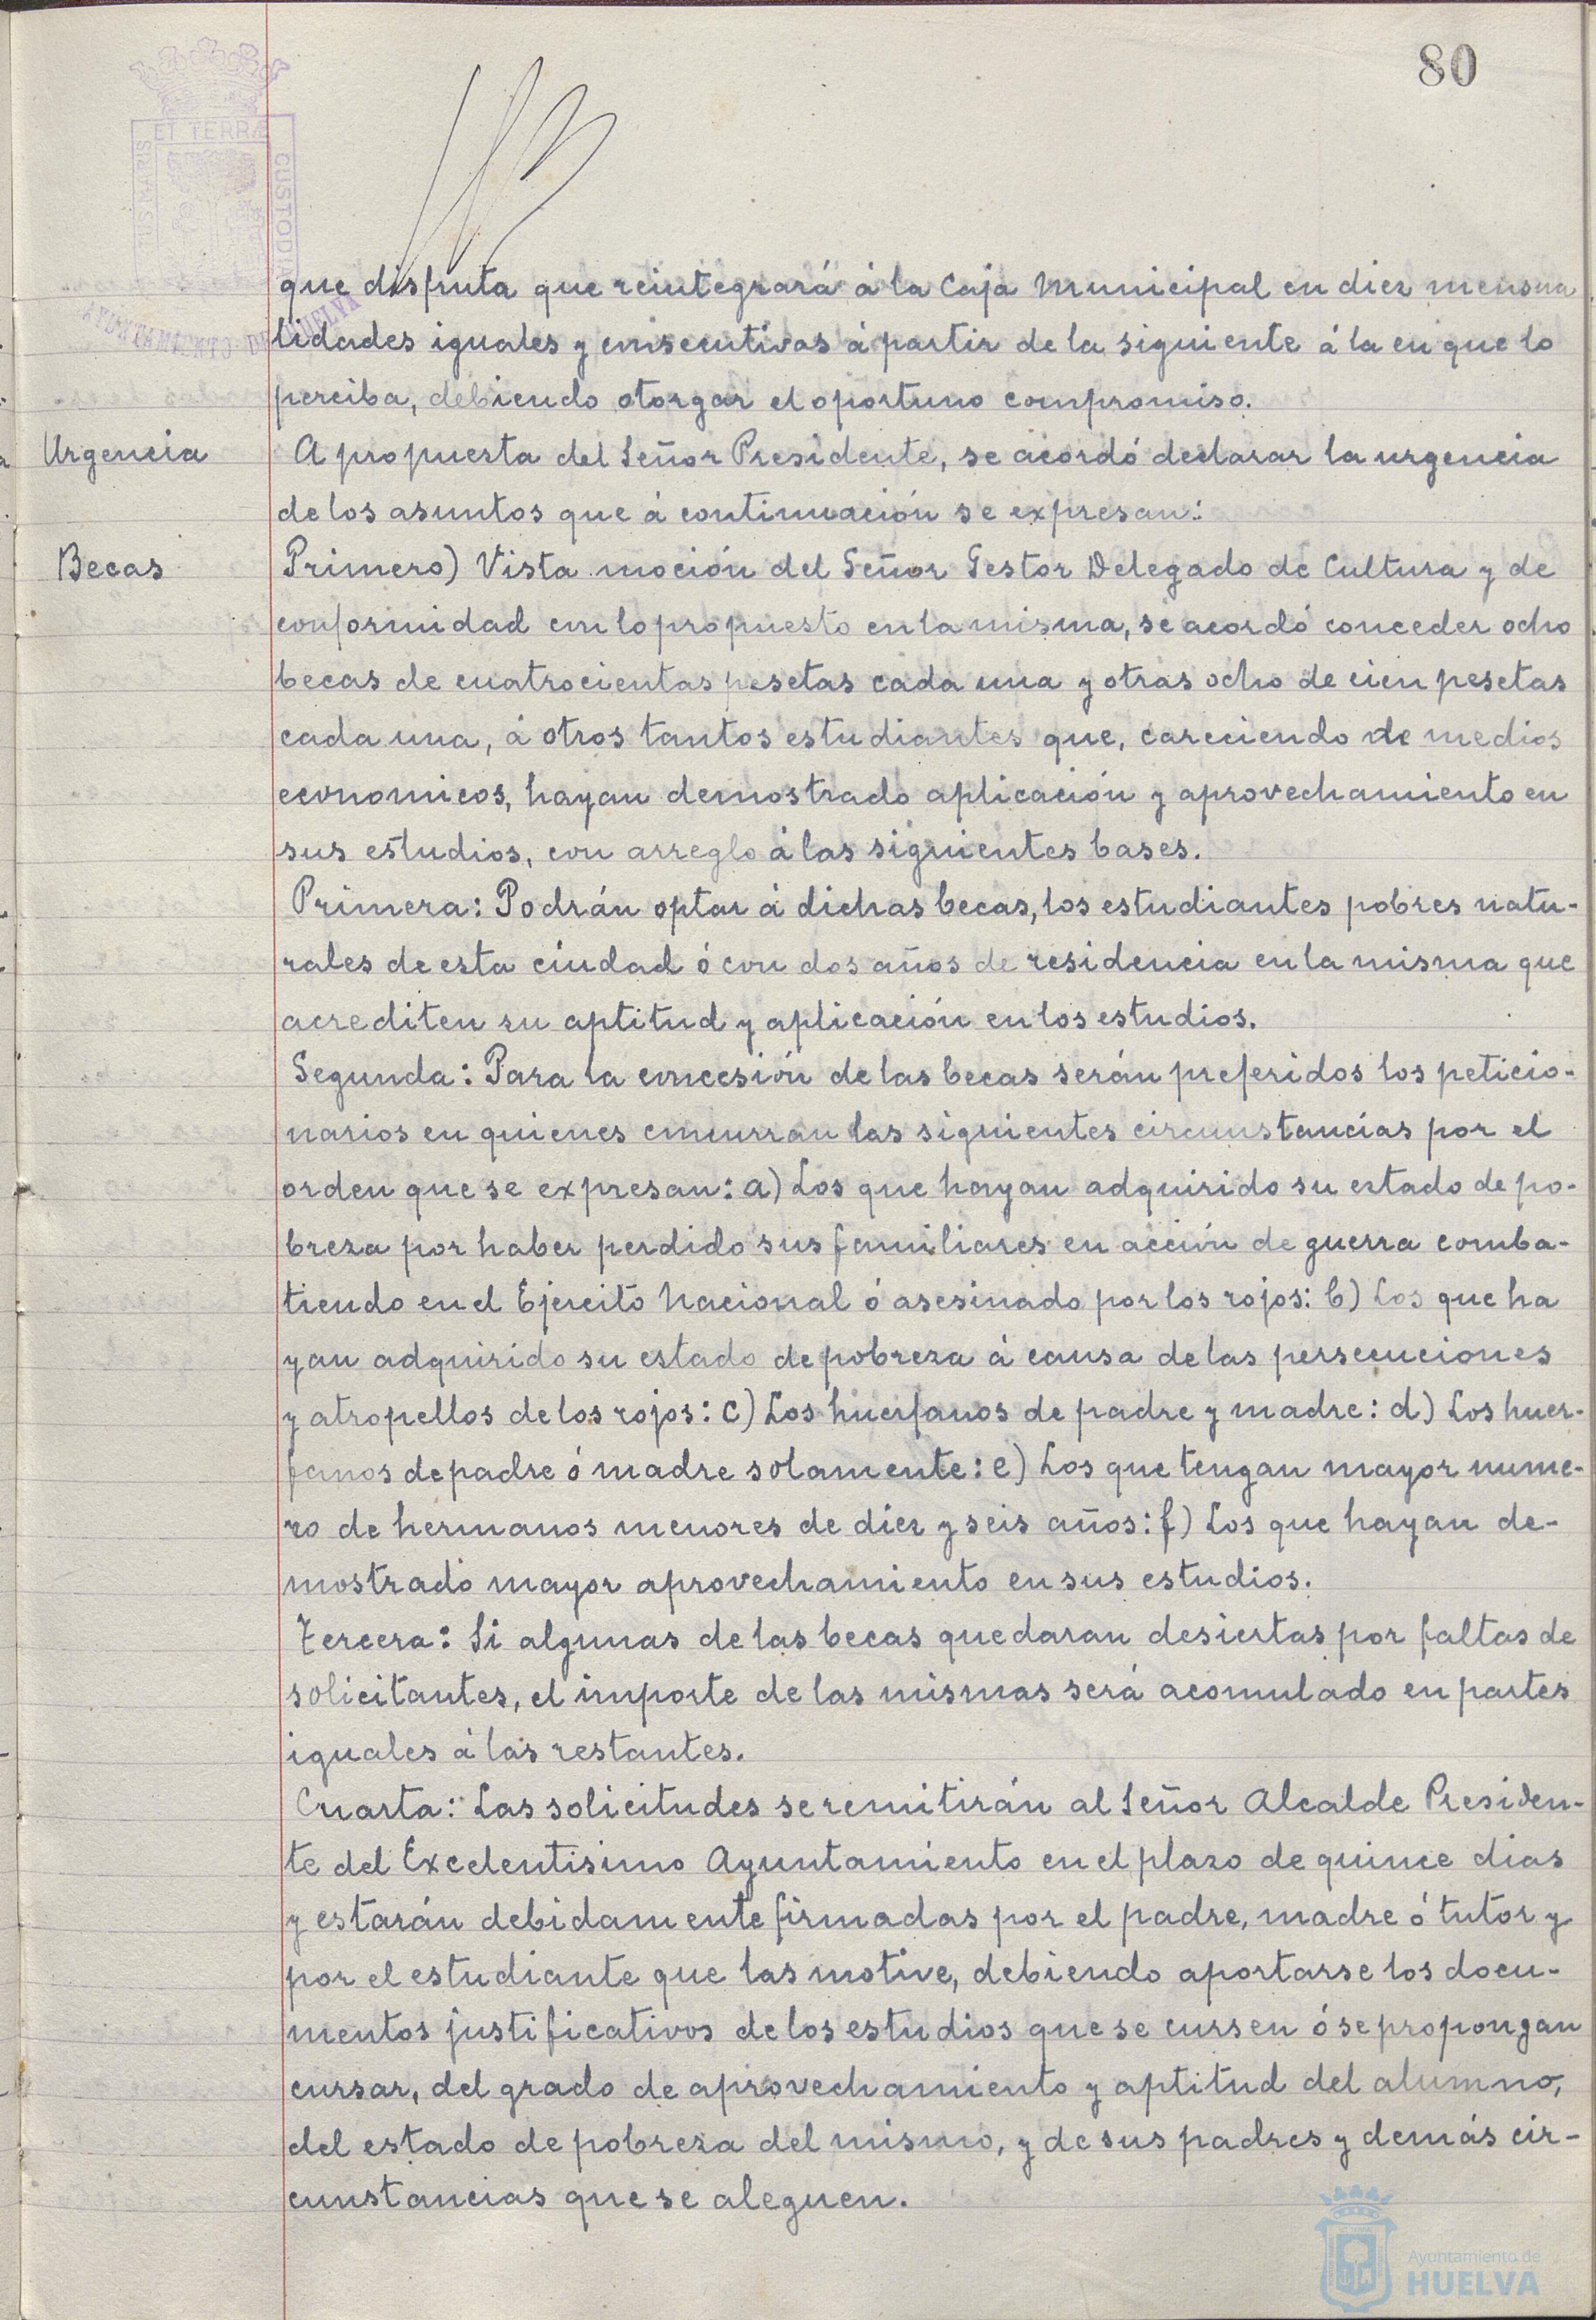 80
ET TERRÆ
CUSTODI
MARIS
AYUNTAMIENTO DE HUELVA
que disfruta que reintegrará á la Caja Municipal en diez mensua
lidades iguales y consecutivas á partir de la siguiente á la en que lo
perciba, debiendo otorgar el oportuno compromiso.
Urgencia
A propuesta del Señor Presidente, se acordó declarar la urgencia
de los asuntos que á continuación se expresan:
Becas
Primero) Vista moción del Señor Gestor Delegado de Cultura y de
conformidad con lo propuesto en la misma, se acordó conceder ocho
becas de cuatrocientas pesetas cada una y otras ocho de cien pesetas
cada una, á otros tantos estudiantes que, careciendo de medios
economicos, hayan demostrado aplicación y aprovechamiento en
sus estudios, con arreglo á las siguientes bases.
Primera: Podrán optar á dichas becas, los estudiantes pobres natu-
rales de esta ciudad ó con dos años de residencia en la misma que
acrediten su aptitud y aplicación en los estudios.
Segunda: Para la concesión de las becas serán preferidos los peticio-
narios en quienes concurran las siguientes circunstancias por el
orden que se expresan: a) Los que hayan adquirido su estado de po-
breza por haber perdido sus familiares en acción de guerra comba-
tiendo en el Ejercito Nacional ó asesinado por los rojos: b) Los que ha
yan adquirido su estado de pobreza á causa de las persecuciones
y atropellos de los rojos: c) Los huerfanos de padre y madre: d) Los huer-
fanos de padre ó madre solamente: e) Los que tengan mayor nume-
ro de hermanos menores de diez y seis años: f) Los que hayan de-
mostrado mayor aprovechamiento en sus estudios.
Tercera: Si algunas de las becas quedaran desiertas por faltas de
solicitantes, el importe de las mismas será acomulado en partes
iguales á las restantes.
Cuarta: Las solicitudes se remitirán al Señor Alcalde Presiden-
te del Excelentisimo Ayuntamiento en el plazo de quince dias
y estarán debidamente firmadas por el padre, madre ó tutor y
por el estudiante que las motive, debiendo aportarse los docu-
mentos justificativos de los estudios que se cursen ó se propongan
cursar, del grado de aprovechamiento y aptitud del alumno,
del estado de pobreza del mismo, y de sus padres y demás cir-
cunstancias que se aleguen.
Ayuntamiento de
HUELVA